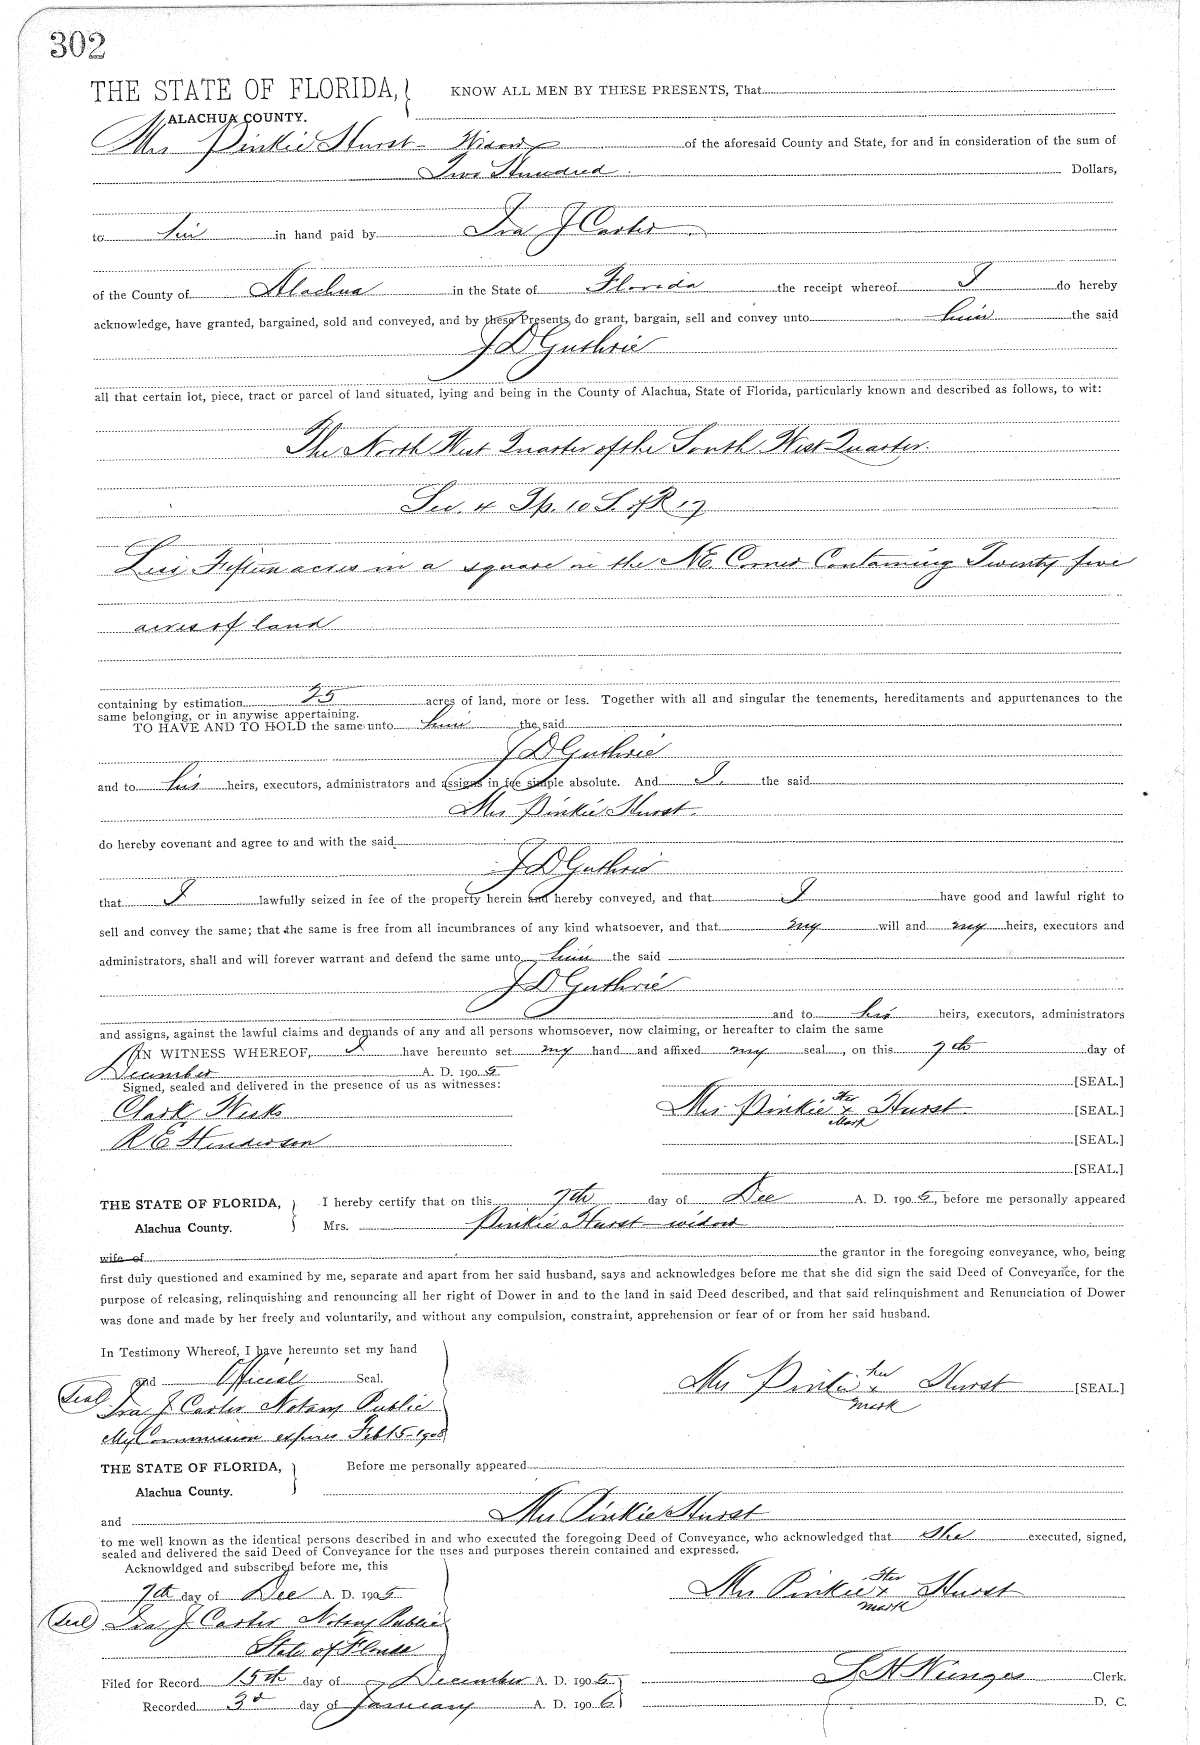 302
THE STATE OF FLORIDA,
ALACHUA COUNTY.
KNOW ALL MEN BY THESE PRESENTS, That
Mrs Pinkie Hurst - Widow of the aforesaid County and State, for and in consideration of the sum of
Two Hundred Dollars,
to in hand paid by Ira J Carter
of the County of Alachua in the State of Florida the receipt whereof I do hereby
acknowledge, have granted, bargained, sold and conveyed, and by these Presents do grant, bargain, sell and convey unto him the said
J D Guthrie
all that certain lot, piece, tract or parcel of land situated, lying and being in the County of Alachua, State of Florida, particularly known and described as follows, to wit:
The North West Quarter of the South West Quarter.
Sec. 4 Tp. 10 S. of R 17
Less Fifteen acres in a square in the N.E. Corner Containing Twenty five
acres of land
containing by estimation 25 acres of land, more or less. Together with all and singular the tenements, hereditaments and appurtenances to the
same belonging, or in anywise appertaining.
TO HAVE AND TO HOLD the same unto him the said
J D Guthrie
and to his heirs, executors, administrators and assigns in fee simple absolute. And I. the said
Mrs Pinkie Hurst.
do hereby covenant and agree to and with the said
J D Guthrie
that I lawfully seized in fee of the property herein and hereby conveyed, and that I have good and lawful right to
sell and convey the same; that the same is free from all incumbrances of any kind whatsoever, and that my will and my heirs, executors and
administrators, shall and will forever warrant and defend the same unto him the said
J D Guthrie
and to his heirs, executors, administrators
and assigns, against the lawful claims and demands of any and all persons whomsoever, now claiming, or hereafter to claim the same
IN WITNESS WHEREOF, I have hereunto set my hand and affixed my seal, on this 7th day of
December A. D. 1905
Signed, sealed and delivered in the presence of us as witnesses: [SEAL.]
Clark Weeks Mrs. Pinkie Her x Mark Hurst [SEAL.]
R E Henderson [SEAL.]
[SEAL.]
THE STATE OF FLORIDA,
Alachua County.
I hereby certify that on this 7th day of Dec A. D. 1905, before me personally appeared
Mrs. Pinkie Hurst widow
wife of the grantor in the foregoing conveyance, who, being
first duly questioned and examined by me, separate and apart from her said husband, says and acknowledges before me that she did sign the said Deed of Conveyance, for the
purpose of releasing, relinquishing and renouncing all her right of Dower in and to the land in said Deed described, and that said relinquishment and Renunciation of Dower
was done and made by her freely and voluntarily, and without any compulsion, constraint, apprehension or fear of or from her said husband.
In Testimony Whereof, I have hereunto set my hand
and Official Seal.
Seal Ira J Carter Notary Public
My Commission expires Feb 15-1908
Mrs Pinkie her x mark Hurst [SEAL.]
THE STATE OF FLORIDA,
Alachua County.
Before me personally appeared
and Mrs Pinkie Hurst
to me well known as the identical persons described in and who executed the foregoing Deed of Conveyance, who acknowledged that she executed, signed,
sealed and delivered the said Deed of Conveyance for the uses and purposes therein contained and expressed.
Acknowldged and subscribed before me, this
7th day of Dec A. D. 1905
Mrs Pinkie Her x mark Hurst
Seal Ira J Carter Notary Public
State of
Filed for Record 15th day of December A. D. 1905
S H Wienges Clerk.
Recorded 3d day of January A. D. 1906
D. C.